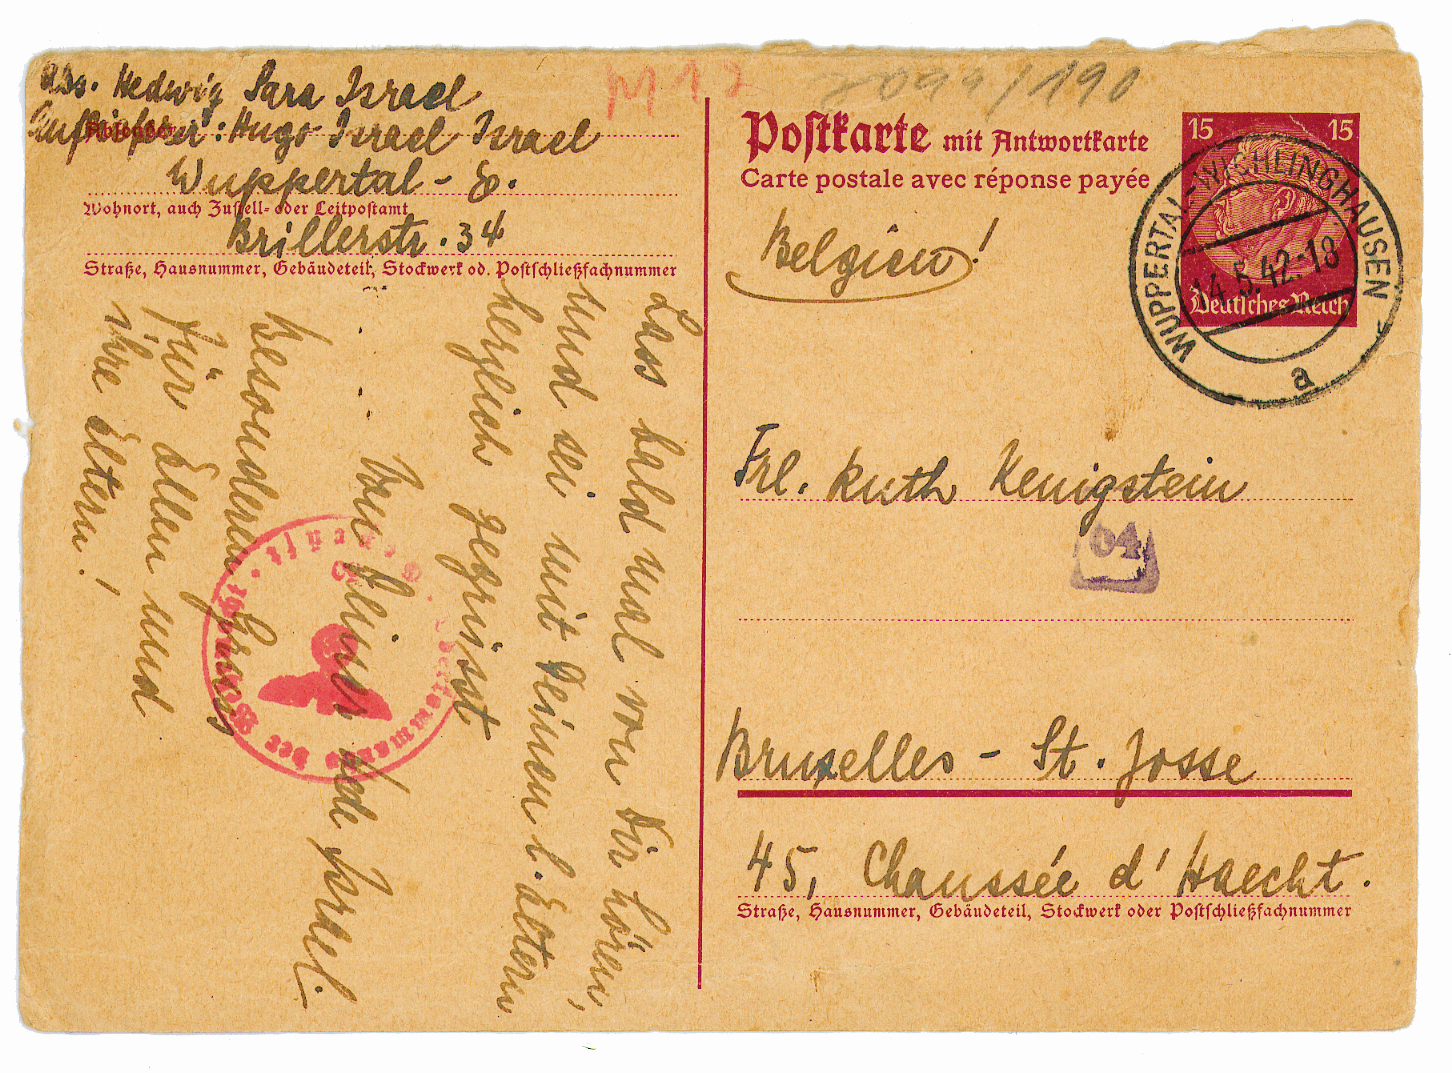 Abs. Hedwig Sara Israel
Absender:
Aufbringer: Hugo Israel Israel
Wuppertal - E.
Wohnort, auch Zustell- oder Leitpostamt
Brillerstr. 34
Straße, Hausnummer, Gebäudeteil, Stockwerk od. Postschließfachnummer
Lass bald mal von Dir hören,
und sei mit Deinen l. Eltern
herzlich gegrüsst
von Deiner Hede Israel.
Besonderen Gruss
für Ellen und
ihre Eltern!
der Wehrmacht
M 17
2099/190
Postkarte mit Antwortkarte
Carte postale avec réponse payée
Belgien!
15 15
Deutsches Reich
WUPPERTAL-WICHLINGHAUSEN
4.5.42.-18
a
Frl. Ruth Kenigstein
04
Bruxelles - St. Josse
45, Chaussée d'Haecht.
Straße, Hausnummer, Gebäudeteil, Stockwerk oder Postschließfachnummer